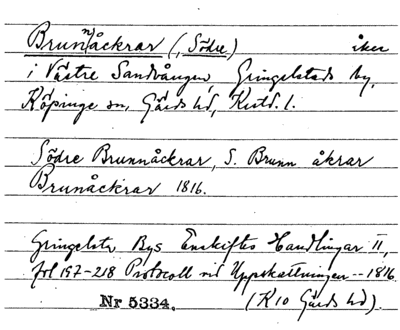 Brunnåckrar (, Södre) åker
i Västre Sandvången, Gringelstads by,
Köpinge sn, Gärds hd, Kristd. l.
Södre Brunnåckrar, S. Brunn åkrar
Brunåckrar 1816.
Gringelsta Bys Enskiftes Handlingar II,
fol 197-218 Protocoll vid Uppskattningen -- 1816
Nr 5334. (K10 Gärds hd).